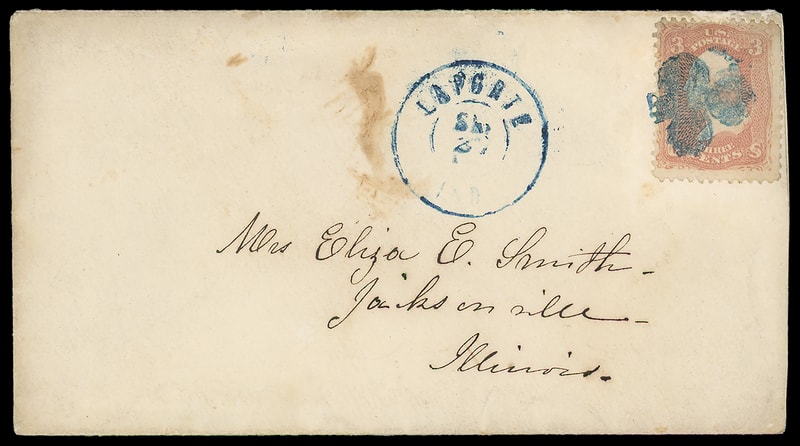 LAPORTE
SEP
27
IND
3 U.S. POSTAGE 3
THREE CENTS
Mrs Eliza E. Smith
Jacksonville
Illinois.